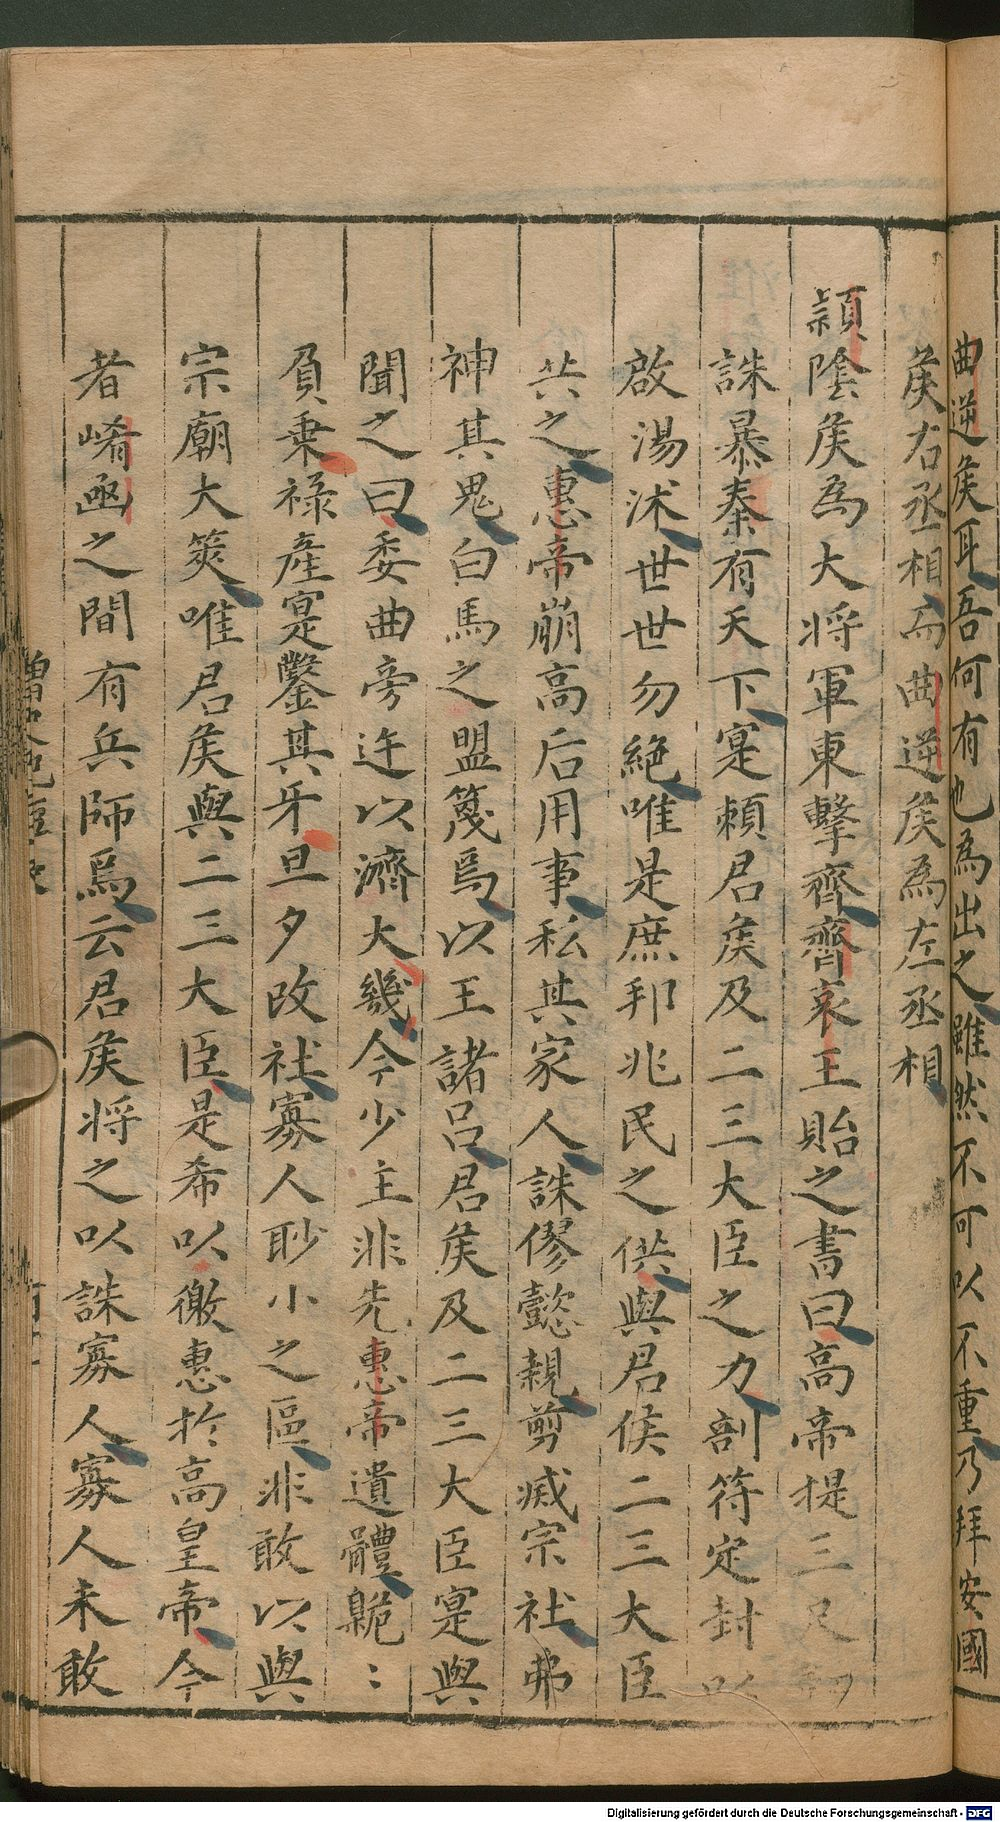 曲逆矦耳吾何有也為出之雖然不可以不重乃拜安國
矦右丞相而曲逆矦為左丞相
潁陰矦為大将軍東擊齊齊哀王貽之書曰高帝提三尺
誅暴秦有天下寔頼君矦及二三大臣之力剖符定封以
啟湯沭世世勿絶唯是庶邦兆民之供與君侯二三大臣
共之惠帝崩高后用事私其家人誅僇懿親剪烕宗社弗
神其鬼白馬之盟篾焉以王諸呂君矦及二三大臣寔與
聞之曰委曲旁迕以濟大幾今少主非先惠帝遺體毹〻
負乗祿產寔鑿其牙旦夕改社寡人眇小之區非敢以與
宗廟大筴唯君矦與二三大臣是希以徼惠扵高皇帝今
者崤凾之間有兵師焉云君矦将之以誅寡人寡人未敢
Digitalisierung gefördert durch die Deutsche Forschungsgemeinschaft - DFG